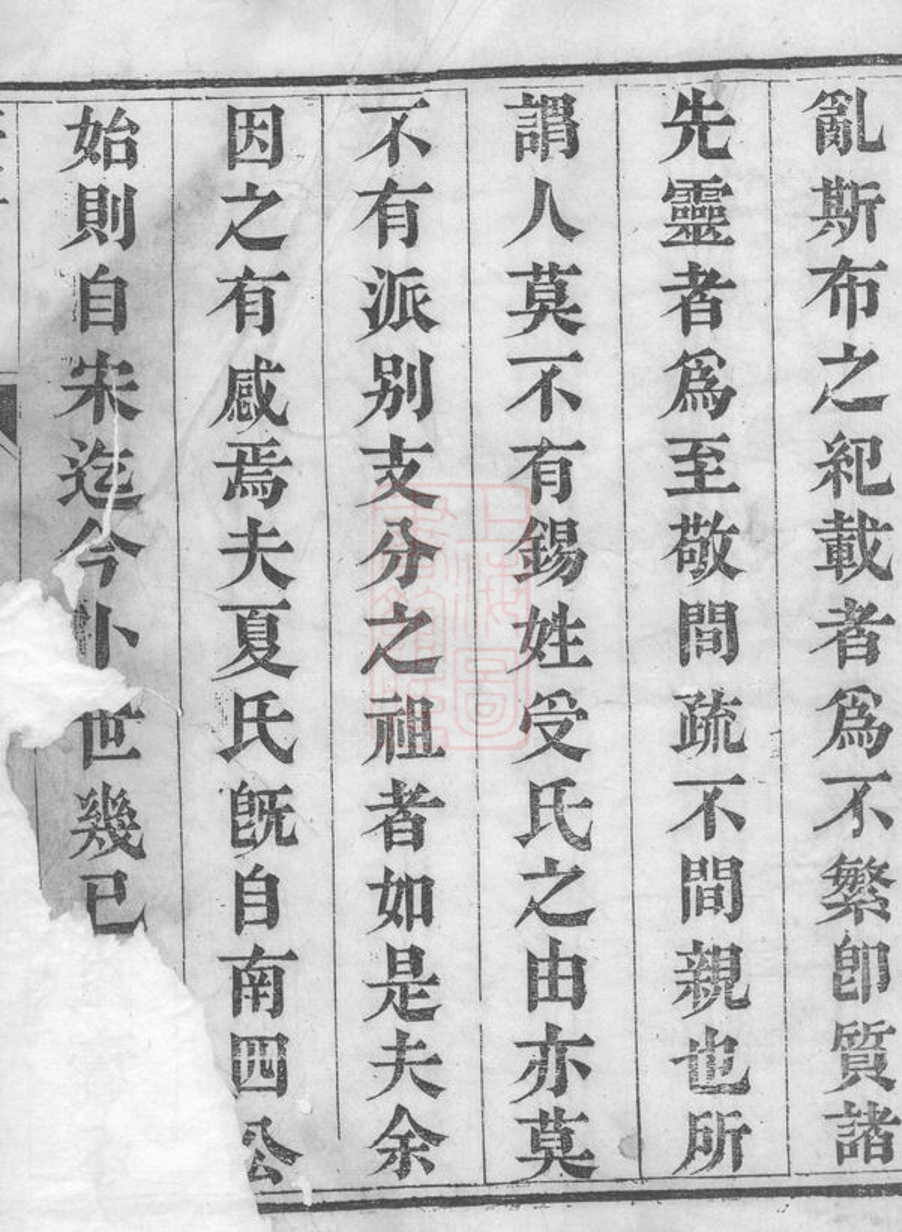 亂斯布之紀載者爲不繁卽質諸
先靈者爲至敬間疏不間親也所
謂人莫不有錫姓受氏之由亦莫
不有派別支分之祖者如是夫余
因之有感焉夫夏氏旣自南四公
始則自宋迄今卜世幾已
上海圖書館藏